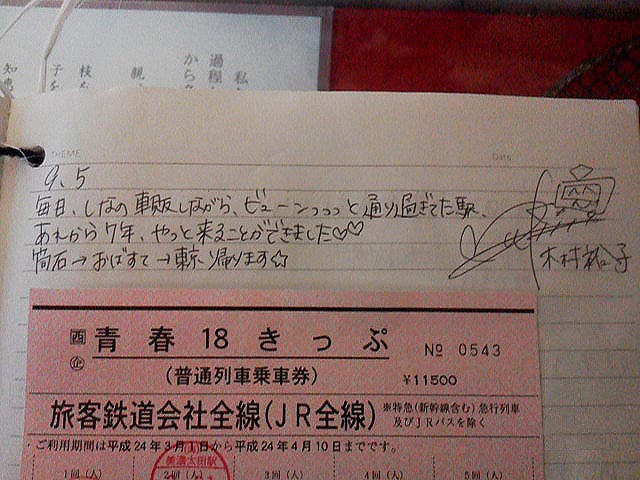 私
過程
から
親
枝
子を
知恵
THEME
Date
9.5
毎日、しなの車販しながら、ビューンっっっと通り過ぎてた駅、
あれから7年、やっと来ることができました♡♡
筒石→おばすて→東京、帰ります☆
木村裕子
西企 青春18きっぷ
№ 0543
(普通列車乗車券)
¥11500
旅客鉄道会社全線(JR全線)
※特急(新幹線含む)急行列車
及びJRバスを除く
・ご利用期間は平成24年3月1日から平成24年4月10日までです。
1回(人) 2回(人) 3回(人) 4回(人) 5回(人)
美濃太田駅